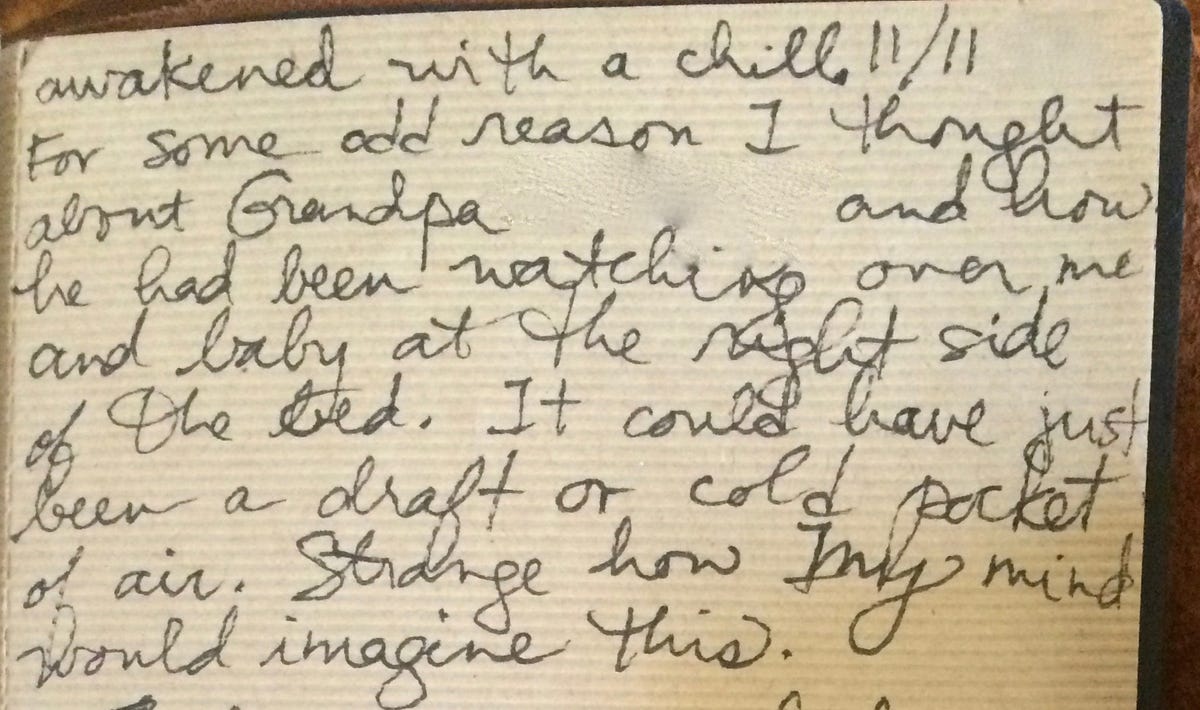 awakened with a chill. 11/11
For some odd reason I thought
about Grandpa and how
he had been watching over me
and baby at the right side
of the bed. It could have just
been a draft or cold pocket
of air. Strange how my mind
would imagine this.